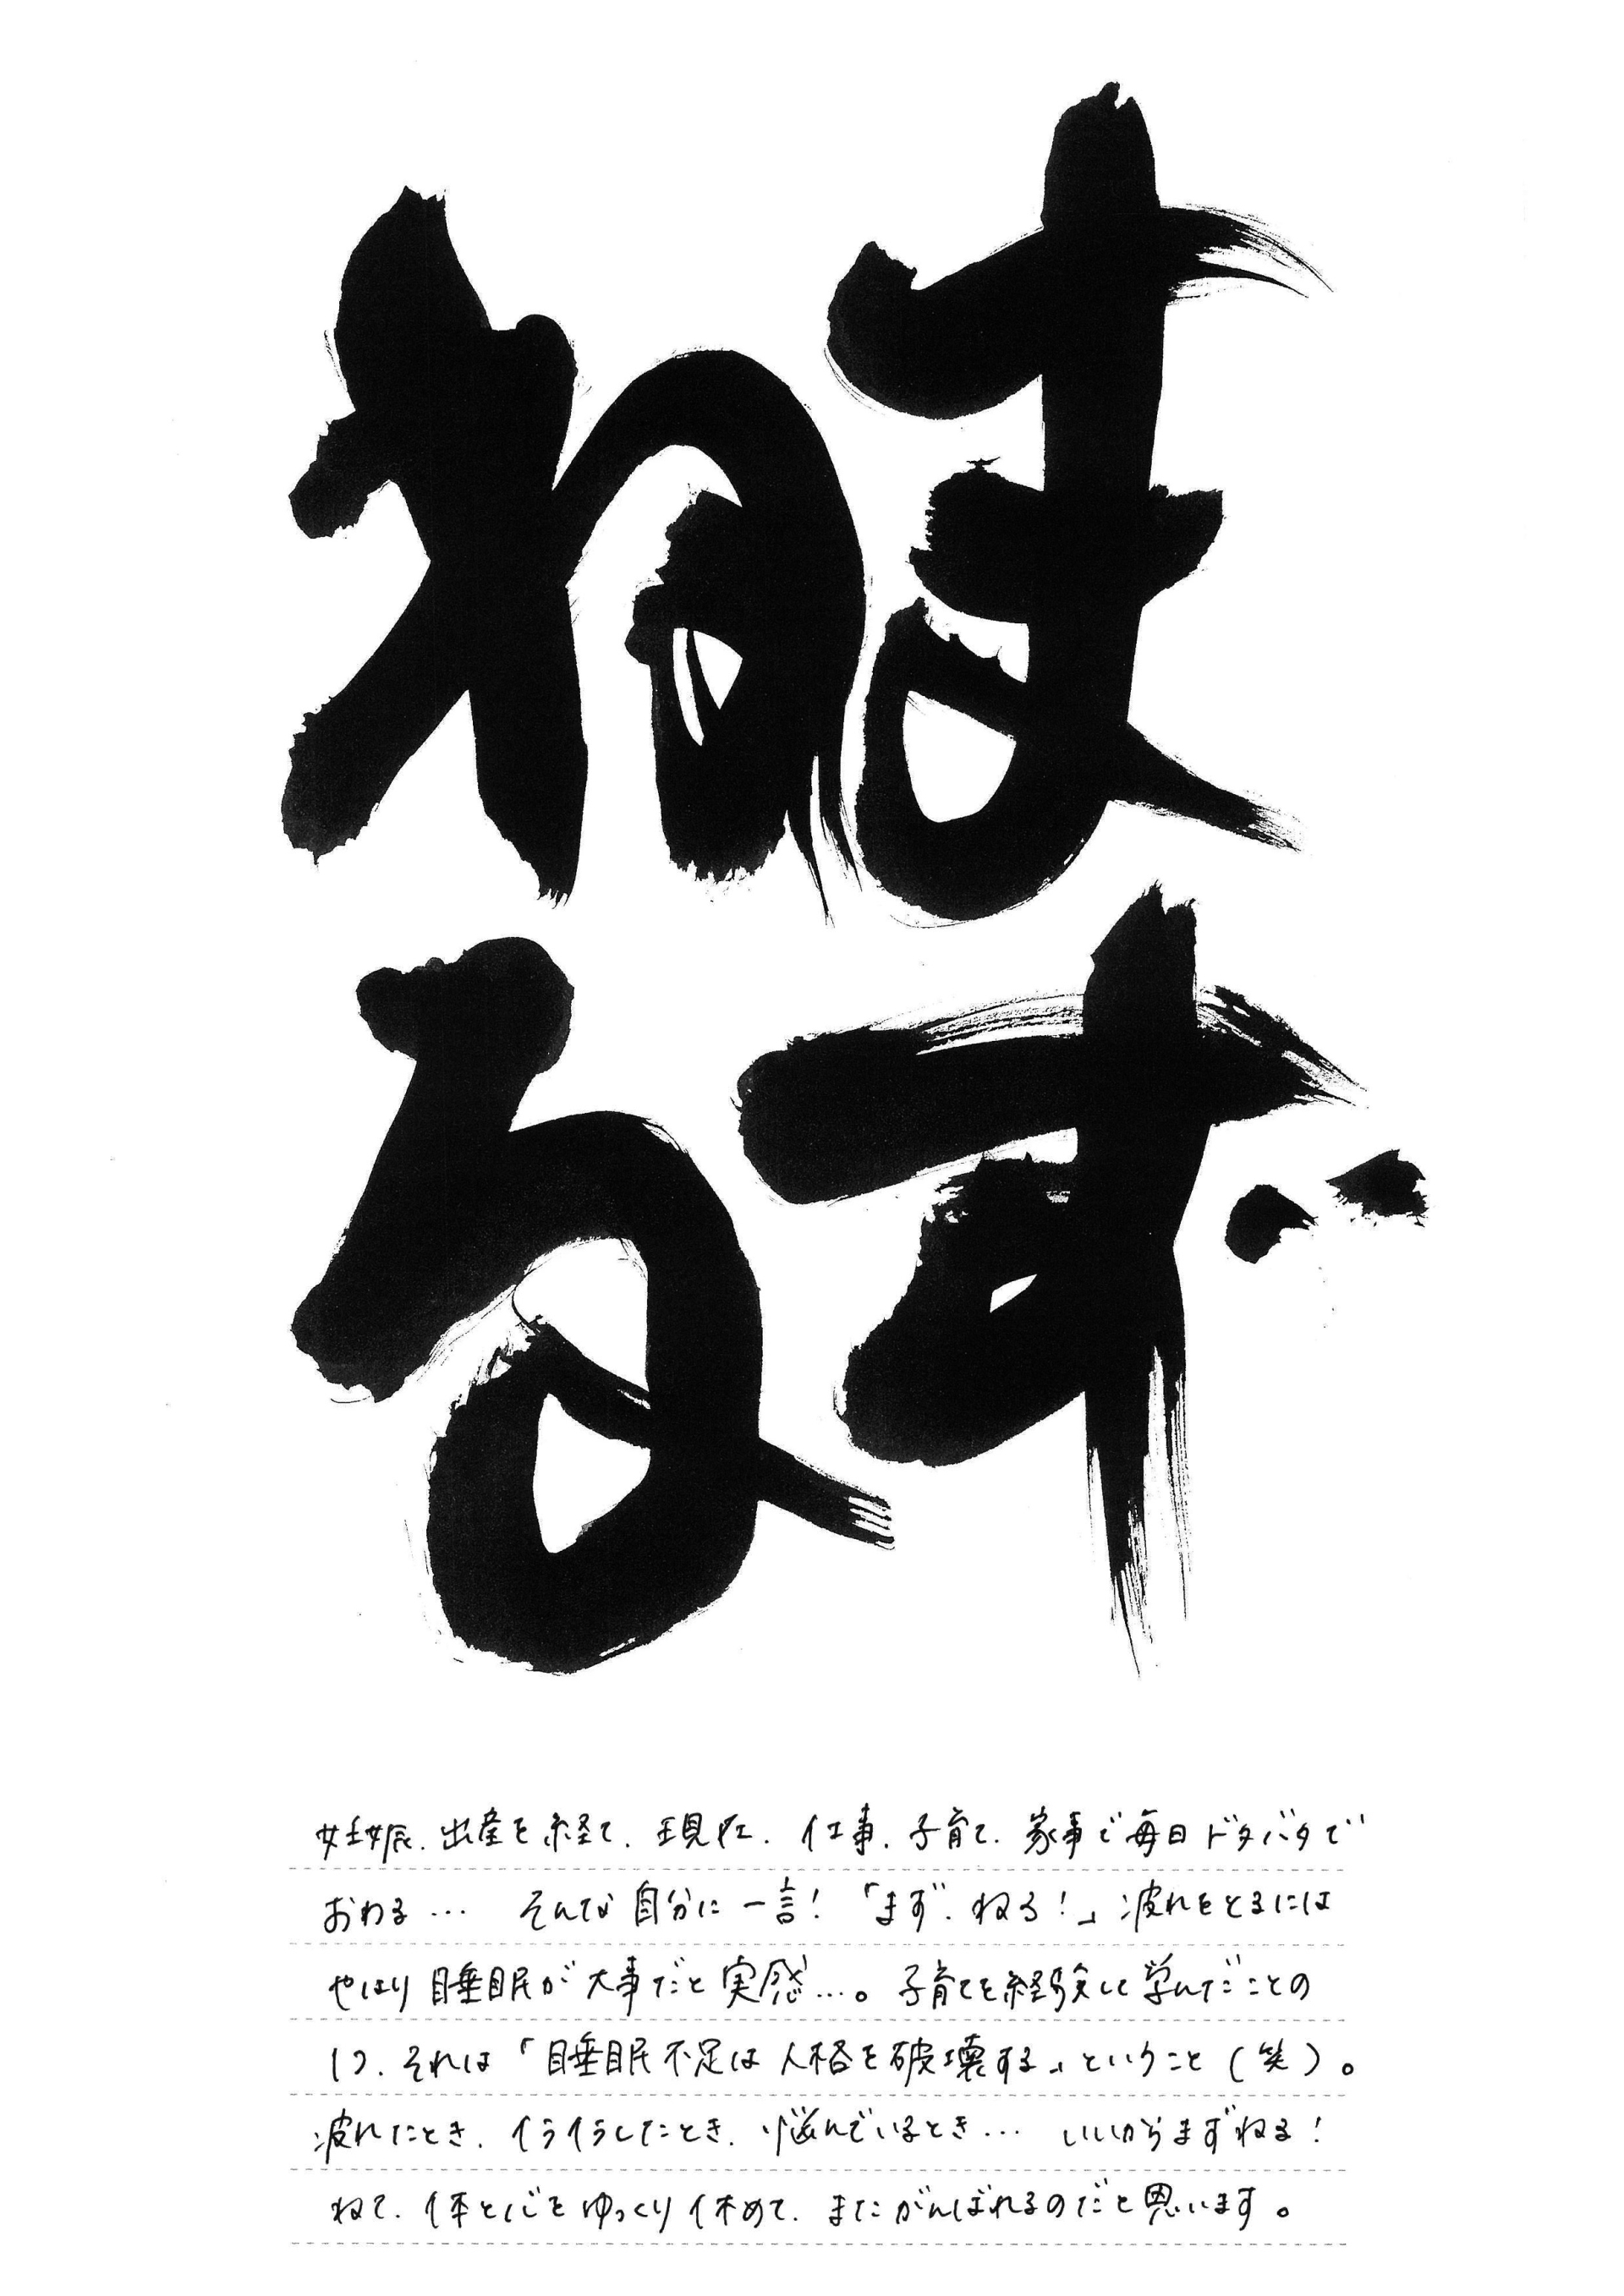 まず
ねる
妊娠、出産を経て、現在、仕事、子育て、家事で毎日ドタバタで
おわる… そんな自分に一言！「まず、ねる！」疲れをとるには
やはり睡眠が大事だと実感…。子育てを経験して学んだことの
1つ、それは「睡眠不足は人格を破壊する」ということ（笑）。
疲れたとき、イライラしたとき、悩んでいるとき… いいからまずねる！
ねて、体と心をゆっくり休めて、またがんばれるのだと思います。